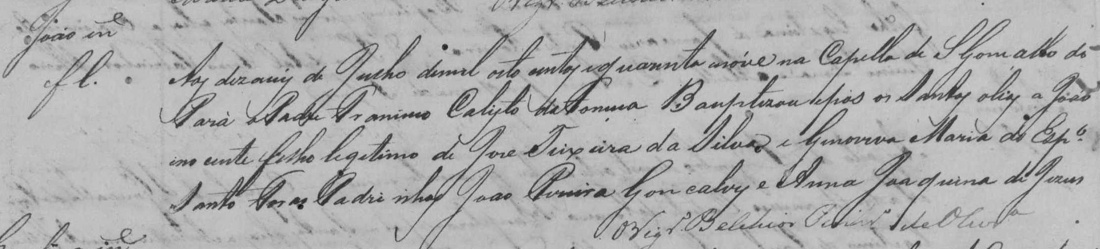 João in.e
fl.
Aos dezanoy de Junho de mil oito centos e quarenta e nóve na Capella de S Gomcallo do
Pará o Padre Calisto da Fonseca Bauptizou e pios os Santos olios a João
inocente filho legitimo de Jose Teixeira da Silva, e Genoveva Maria do Esp.º
Santo Foraõ Padrinhos João Pereira Goncalvez e Anna Joaquina de Jezus
O Vigr.º Belchior de Olivr.a